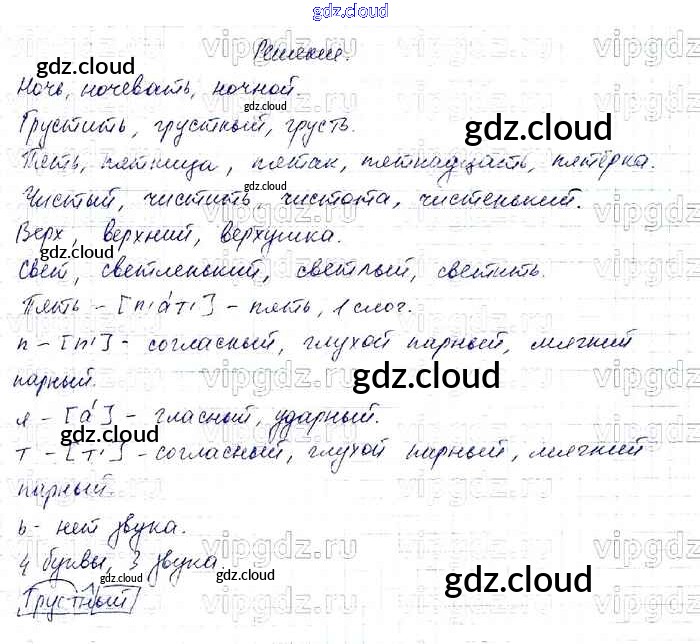 gdz.cloud
Решение.
Ночь, ночевать, ночной.
Грустить, грустный, грусть.
Пять, пятница, пятак, пятнадцать, пятёрка.
Чистый, чистить, чистота, чистенький.
Верх, верхний, верхушка.
Свет, светленький, светлый, светить.
Пять – [п'а́т'] – пять, 1 слог.
п – [п'] – согласный, глухой парный, мягкий
парный.
я – [а́] – гласный, ударный.
т – [т'] – согласный, глухой парный, мягкий
парный.
ь – нет звука.
4 буквы, 3 звука.
Грустный
gdz.cloud
gdz.cloud
gdz.cloud
gdz.cloud
gdz.cloud
gdz.cloud
gdz.cloud
gdz.cloud
gdz.cloud
gdz.cloud
gdz.cloud